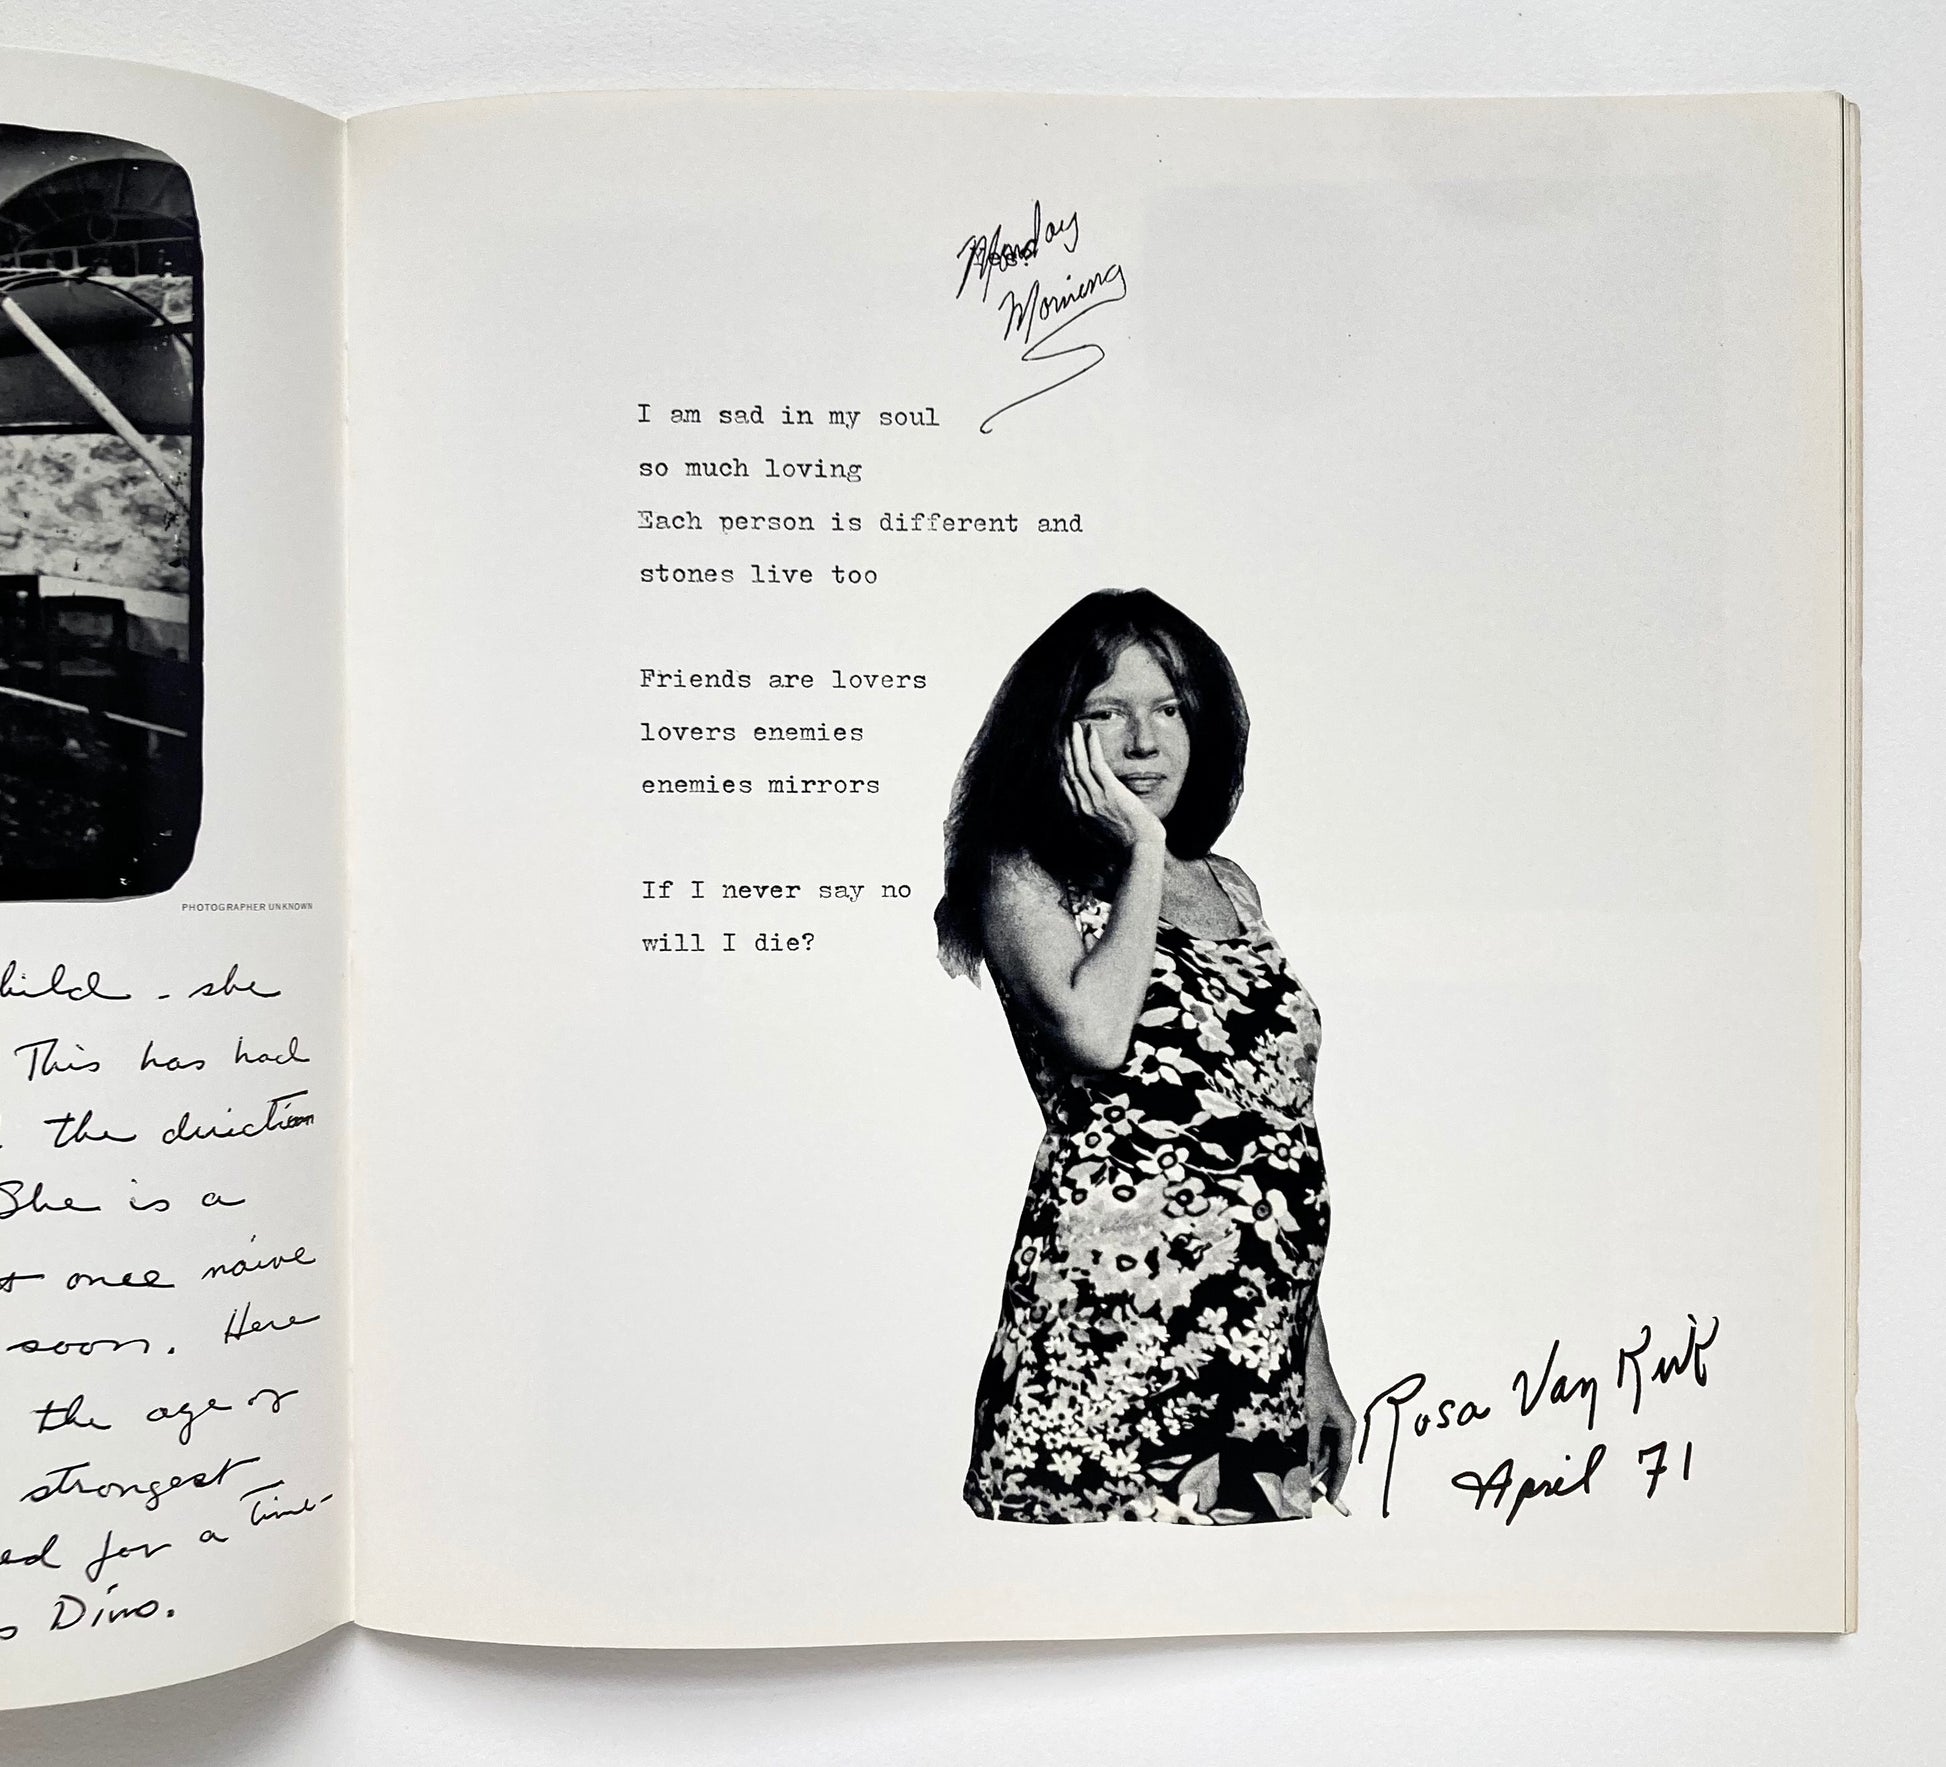 PHOTOGRAPHER UNKNOWN
hild - she
This has had
the direction
She is a
once naive
soon. Here
the age of
strongest
ed for a Time-
Dino.
Monday
Morning
I am sad in my soul
so much loving
Each person is different and
stones live too
Friends are lovers
lovers enemies
enemies mirrors
If I never say no
will I die?
Rosa Van Kirk
April 71